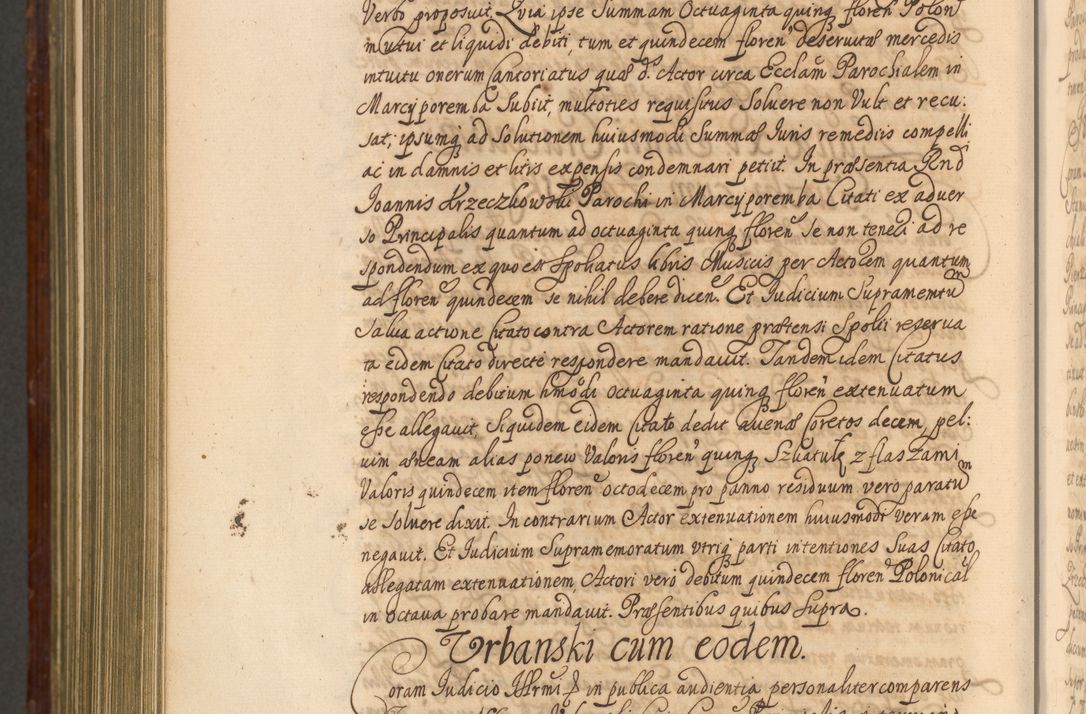 Verbo proposuit, Quia ipse Summam Octuaginta quinq floren Polon
mutui et liquidi debiti, tum et quindecem floren deseruitæ mercedis
intuitu onerum Cantoriatus quæ d. Actor circa Ecclam Parochialem in
Marcyporemba Subiit, multoties requisitus Soluere non Vult et recu:
sat, ipsumq ad Solutionem huiusmodi Summæ Iuris remediis compelli
ac in damnis et litis expensis condemnari petiit. In præsentia Rnd
Joannis Krzeczkowski Parochi in Marcyporemba Citati ex aduer
so Principalis quantum ad octuaginta quinq floren se non teneri ad re
spondendum ex quo est Spoliatus libris Musicis per Actorem quantum
ad floren quindecem se nihil debere dicen. Et Iudicium Supramemtum
Salua actione Citato contra Actorem ratione prætensi Spolii reserua
ta eidem Citato directe respondere mandauit. Tandem idem Citatus
respondendo debitum hmodi octuaginta quinq floren extenuatum
esse allegauit, Siquidem eidem Citato dedit auenæ Coretos decem, pel:
uim æream alias ponew Valoris floren quinq, Szkatułę z flaszami
Valoris quindecem item floren octodecem pro panno residuum vero paratum
se soluere dixit. In contrarium Actor extenuationem huiusmodi veram esse
negauit. Et Iudicium Supramemoratum vtriq parti intentiones Suas Citato
allegatam extenuationem, Actori vero debitum quindecem floren Polonical
in octaua probare mandauit. Præsentibus quibus Supra.
Vrbanski cum eodem.
Coram Iudicio in publica audientia personaliter comparens